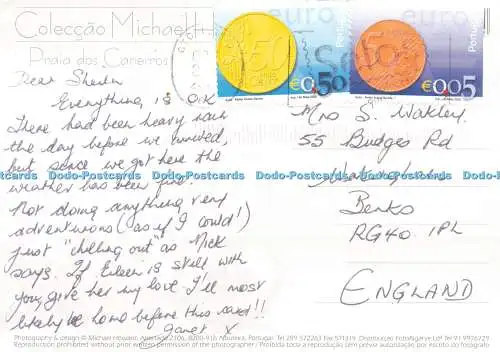 Colecção Michael H
Praia dos Caneiros
euro
€0,50
Portugal
euro
€0,05
Portugal
Dear Sheila
Everything is OK
There had been heavy rain
the day before we arrived,
but since we got here the
weather has been fine.
Not doing anything very
adventurous (as if I could!)
just "chilling out" as Nick
says. If Eileen is still with
you, give her my love. I'll most
likely be home before this card!!
Janet X
Mrs S. Wakley
55 Budges Rd
Wokingham
Berks
RG40 1PL
ENGLAND
Dodo-Postcards Dodo-Postcards Dodo-Postcards Dodo-Postcards Dodo-Postcards
Photography & design © Michael Howard, Apartado 2306, 8200-918 Albufeira, Portugal Tel 289 572263 Fax 571319
Reproduction prohibited without prior written permission of the photographer / Proibida toda a reprodução sem prévia autorização por escrito do fotógrafo